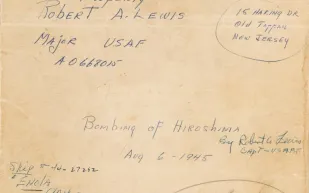 Robert A. Lewis
Major USAF
AO 66801
15 Haring Dr
Old Tappan
New Jersey
Bombing of Hiroshima
Aug 6 - 1945
By Robert A Lewis
Ship
Enola